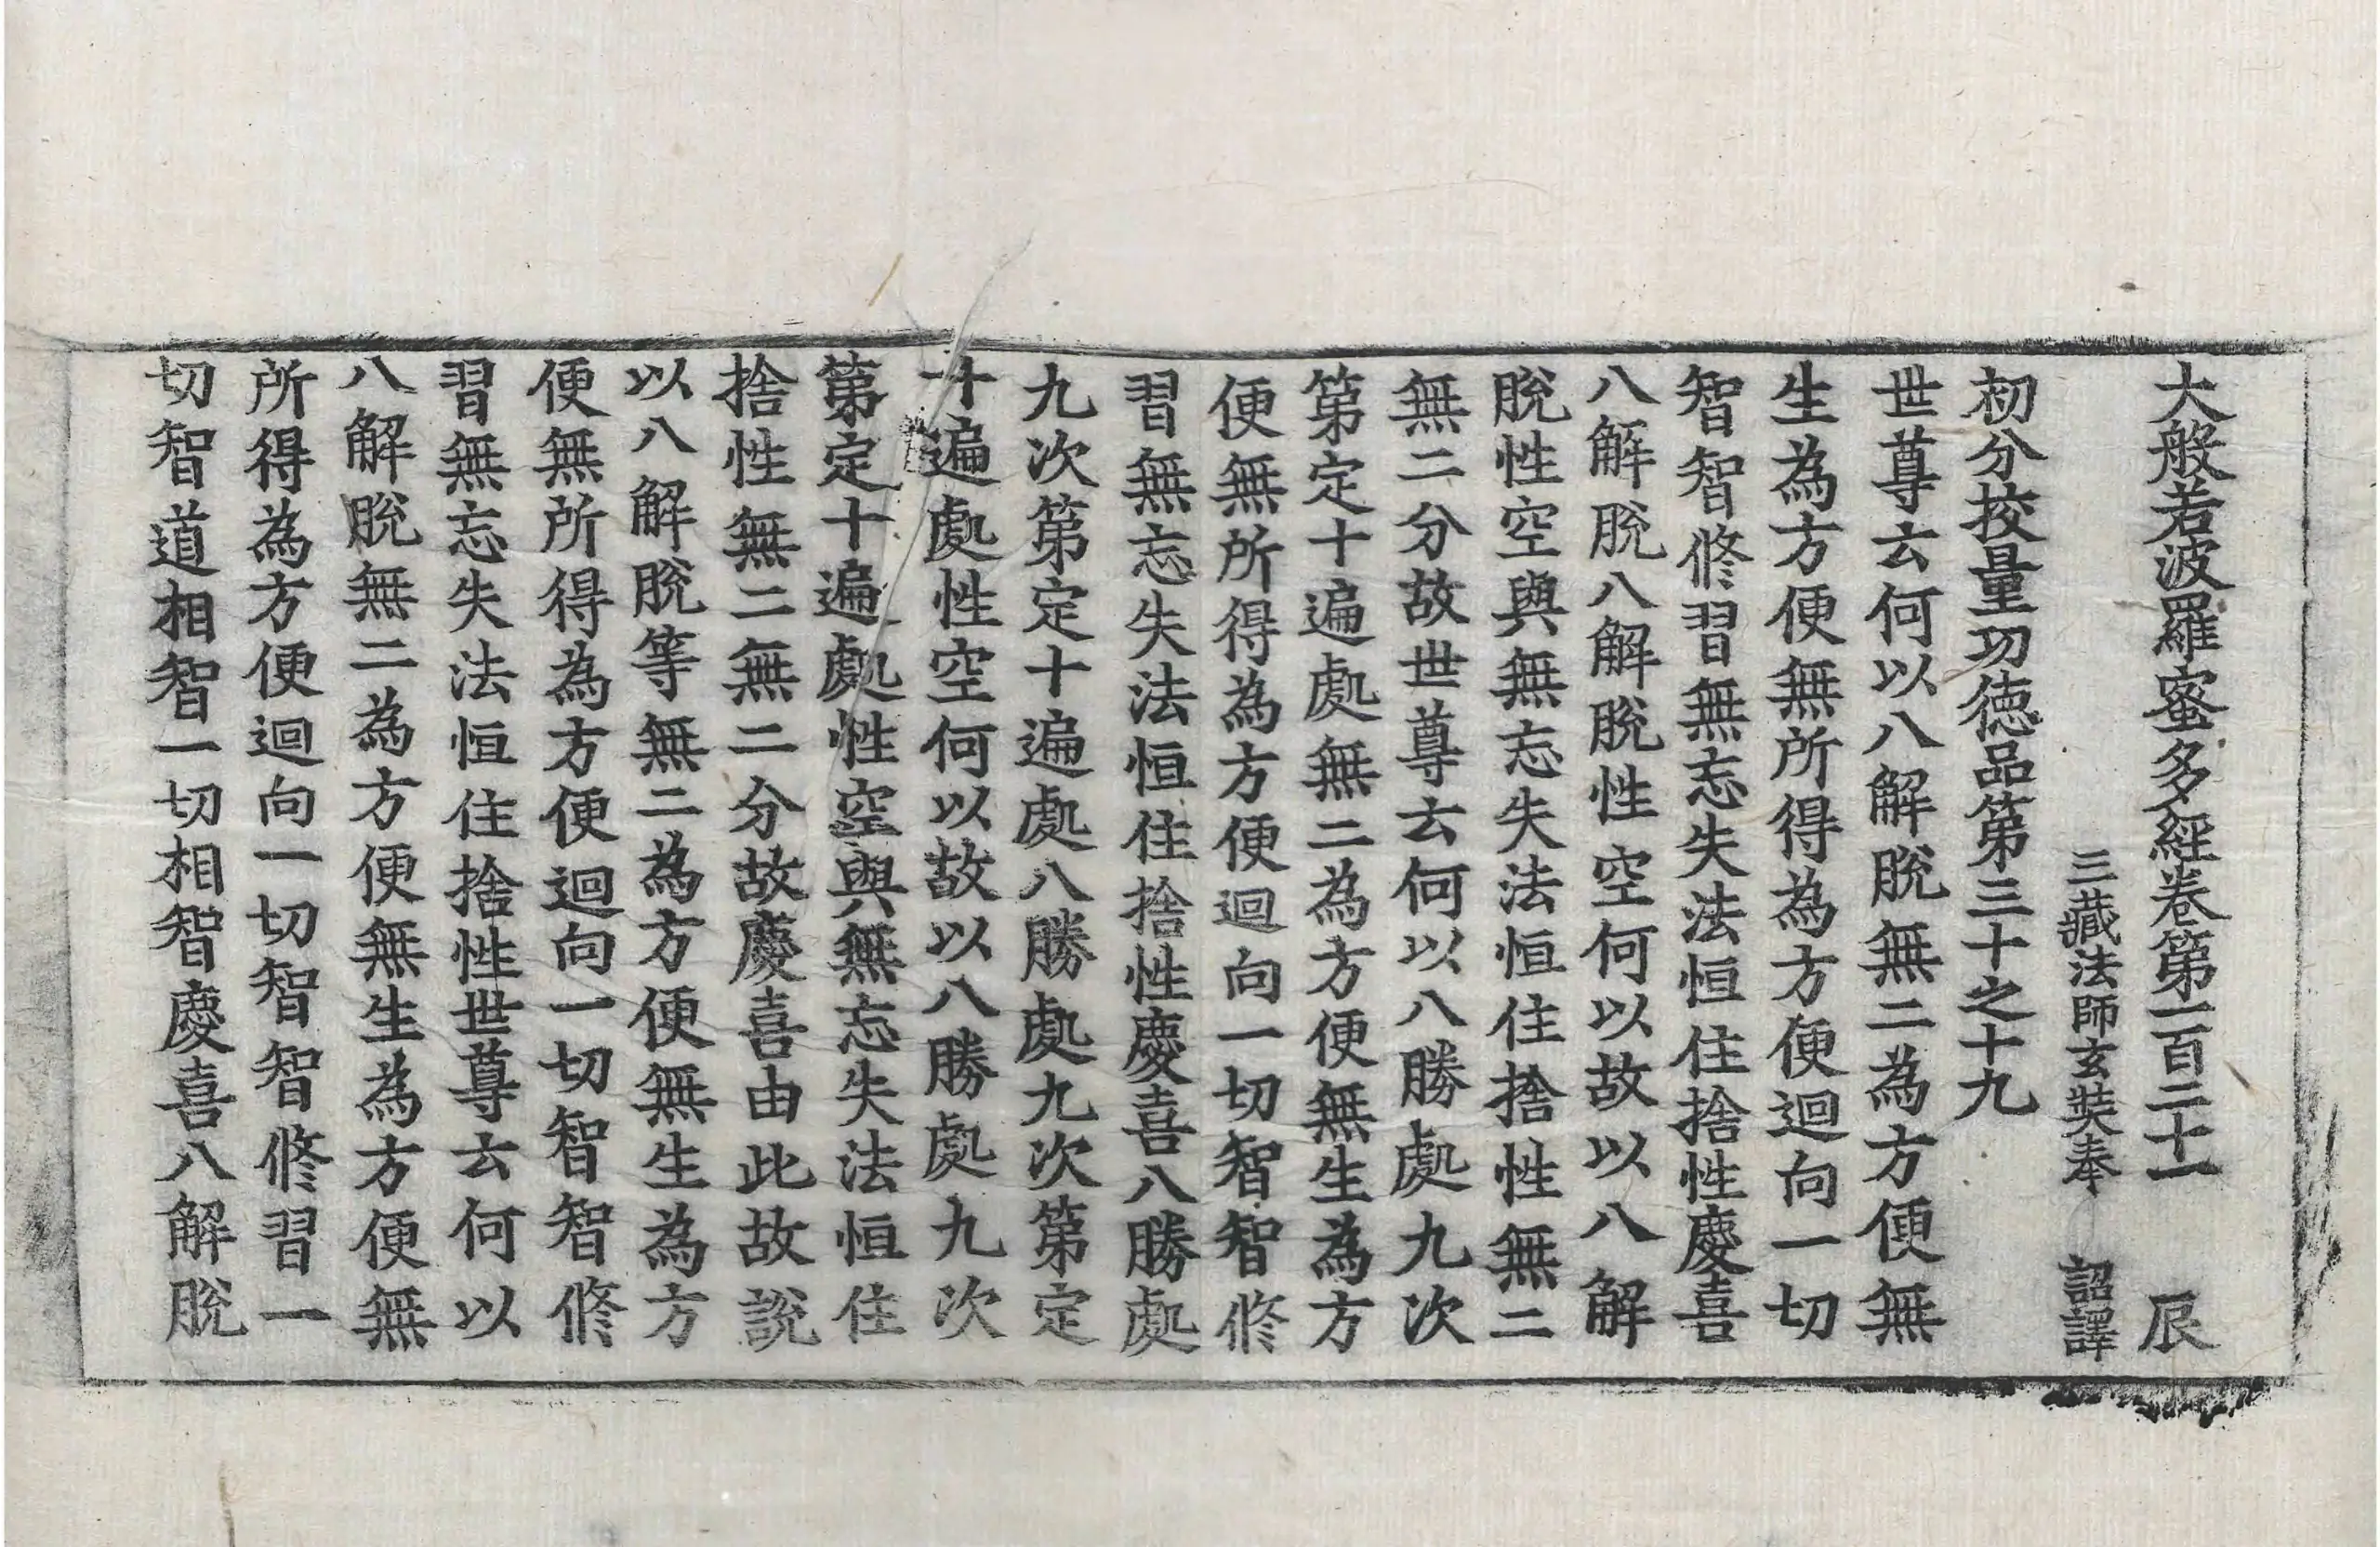 大般若波羅蜜多經卷第一百二十一 辰
三藏法師玄奘奉 詔譯
初分挍量功徳品第三十之十九
世尊云何以八解脫無二為方便無
生為方便無所得為方便迴向一切
智智修習無忘失法恒住捨性慶喜
八解脫八解脫性空何以故以八解
脫性空與無忘失法恒住捨性無二
無二分故世尊云何以八勝處九次
第定十遍處無二為方便無生為方
便無所得為方便迴向一切智智修
習無忘失法恒住捨性慶喜八勝處
九次第定十遍處八勝處九次第定
十遍處性空何以故以八勝處九次
第定十遍處性空與無忘失法恒住
捨性無二無二分故慶喜由此故說
以八解脫等無二為方便無生為方
便無所得為方便迴向一切智智修
習無忘失法恒住捨性世尊云何以
八解脫無二為方便無生為方便無
所得為方便迴向一切智智修習一
切智道相智一切相智慶喜八解脫